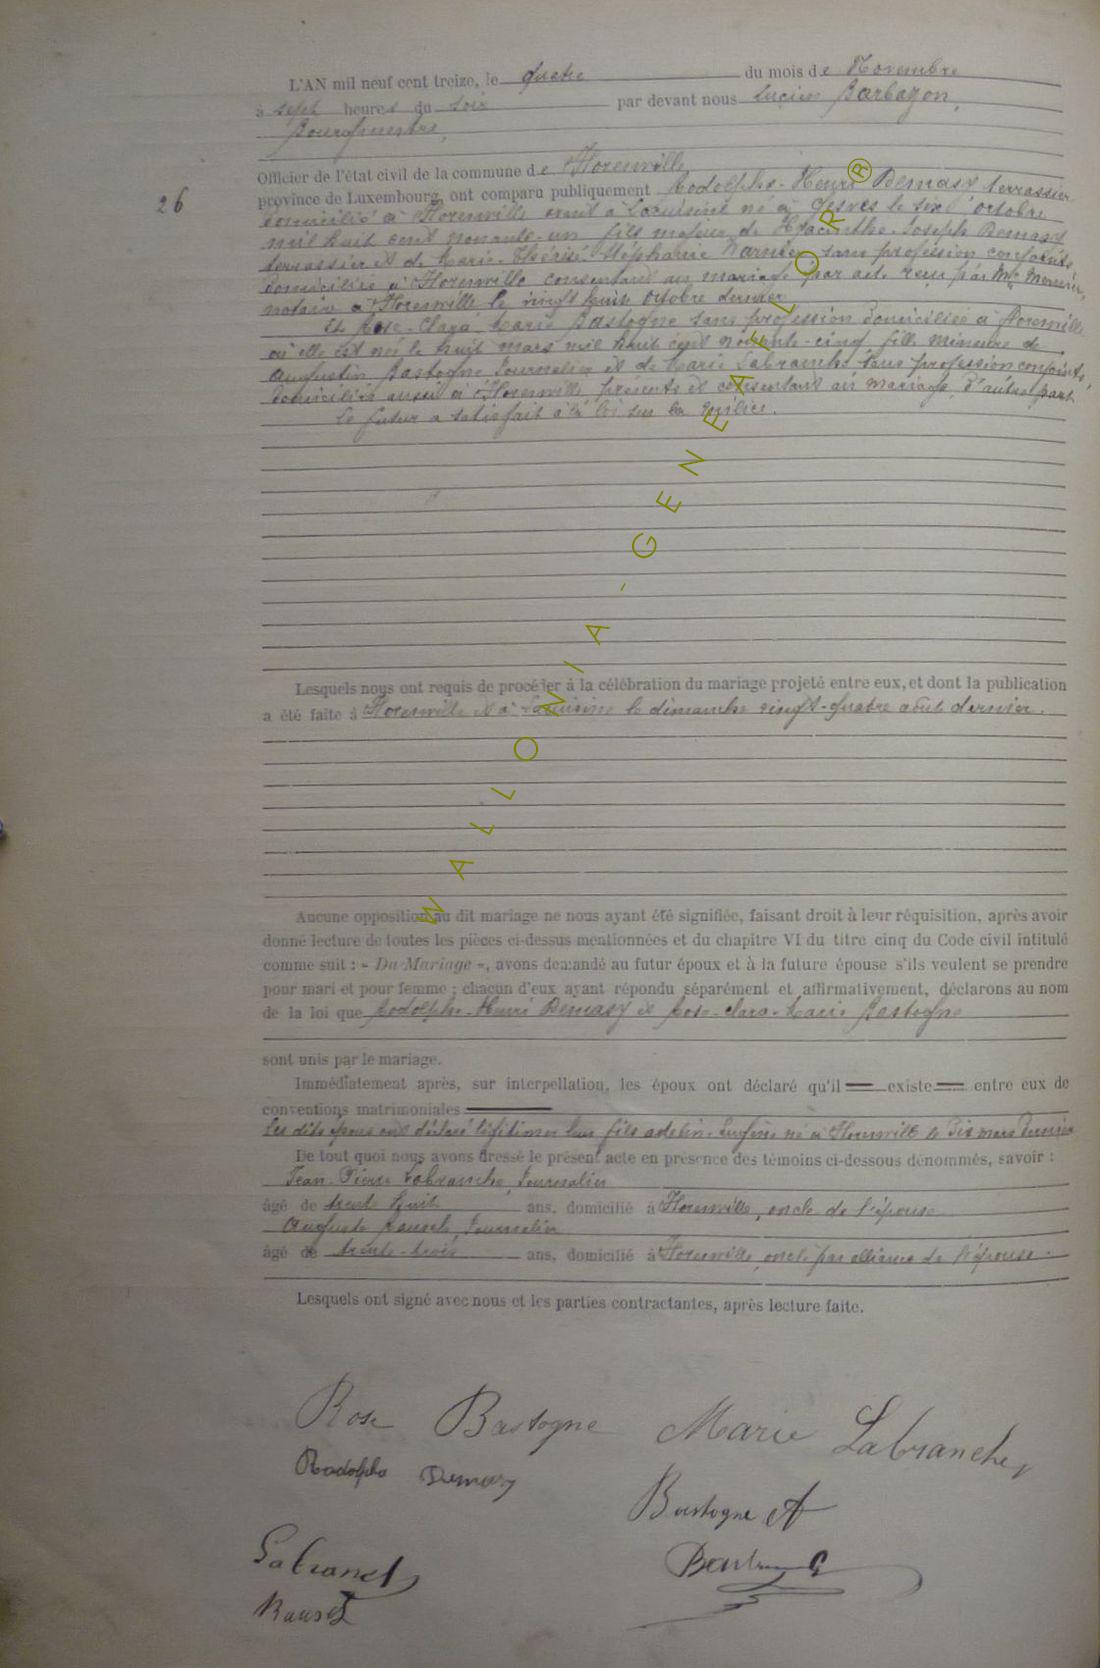 L'AN mil neuf cent treize, le quatre du mois de Novembre
à sept heures du soir par devant nous Lucien Barbazon,
Bourgmestre,
Officier de l'état civil de la commune de Florenville
26
province de Luxembourg, ont comparu publiquement Rodolphe-Henri Demasy terrassier
domicilié à Florenville avant à Lacuisine né à Gesves le six octobre
mil huit cent nonante-un fils majeur de Hyacinthe-Joseph Demasy
terrassier et de Marie-Thérèse-Stéphanie Warnier, sans profession conjoints,
domiciliés à Florenville consentant au mariage par acte reçu par Me
notaire à Florenville le vingt huit octobre dernier
Et Rose-Clara-Marie Bastogne sans profession domiciliée à Florenville
où elle est née le huit mars mil huit cent nonante-cinq, fille mineure de
Augustin Bastogne Journalier et de Marie Labranche sans profession conjoints,
domiciliés aussi à Florenville, présents et consentant au mariage, d'autre part
Le futur a satisfait à la loi sur la milice.
Lesquels nous ont requis de procéder à la célébration du mariage projeté entre eux, et dont la publication
a été faite à Florenville et à Lacuisine le dimanche vingt-quatre août dernier.
Aucune opposition au dit mariage ne nous ayant été signifiée, faisant droit à leur réquisition, après avoir
donné lecture de toutes les pièces ci-dessus mentionnées et du chapitre VI du titre cinq du Code civil intitulé
comme suit : « Du Mariage », avons demandé au futur époux et à la future épouse s'ils veulent se prendre
pour mari et pour femme ; chacun d'eux ayant répondu séparément et affirmativement, déclarons au nom
de la loi que Rodolphe-Henri Demasy et Rose-Clara-Marie Bastogne
sont unis par le mariage.
Immédiatement après, sur interpellation, les époux ont déclaré qu'il existe entre eux de
conventions matrimoniales
Les dits époux ont déclaré légitimer leur fils Adelin-Eugène né à Florenville le dix mars dernier
De tout quoi nous avons dressé le présent acte en présence des témoins ci-dessous dénommés, savoir :
Jean-Pierre Labranche, Journalier
âgé de trente huit ans, domicilié à Florenville, oncle de l'épouse
Auguste Rausch, Journalier
âgé de trente-trois ans, domicilié à Florenville, oncle par alliance de l'épouse.
Lesquels ont signé avec nous et les parties contractantes, après lecture faite.
Rose Bastogne Marie Labranche
Rodolphe Demasy
Bastogne A
Labranch
Rausch
WALLONIA-GENEAFLOR®